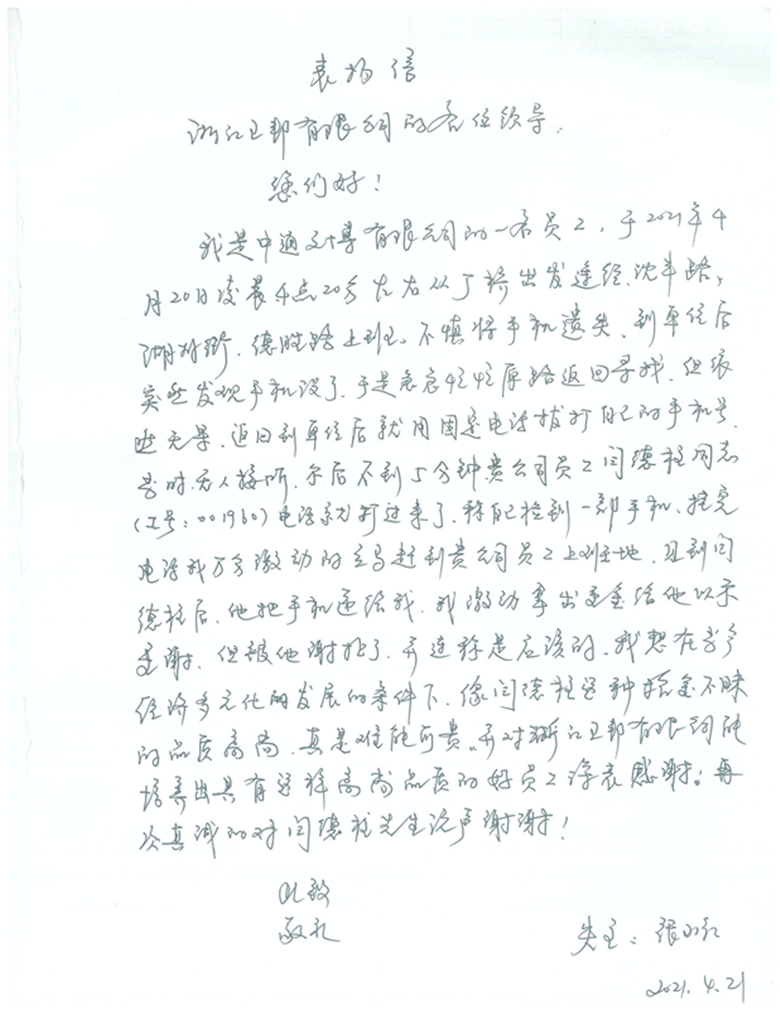 表扬信
浙江卫邦有限公司的各位领导,
您们好!
我是中通文博有限公司的一名员工,于2021年4
月20日凌晨4点20分左右从丁桥出发途经沈半路,
湖州街,德胜路上班。不慎将手机遗失、到单位后
突然发现手机没了,于是急急忙忙原路返回寻找,但依
然无果,返回到单位后就用固定电话拔打自己的手机号,
当时无人接听,尔后不到5分钟贵公司员工闫德柱同志
(工号:001960)电话就打过来了,称自己捡到一部手机、挂完
电话我万分激动的立马赶到贵公司员工上班地,见到闫
德柱后,他把手机递给我,我激动拿出重金给他以示
重谢,但被他谢拒了,并连称是应该的,我想在当今
经济多元化的发展的条件下,像闫德柱这种拾金不昧
的品质高尚,真是难能可贵。并对浙江卫邦有限公司能
培养出具有这样高尚品质的好员工深表感谢;再
次真诚的对闫德柱先生说声谢谢!
此致
敬礼
失主:张
2021.4.21